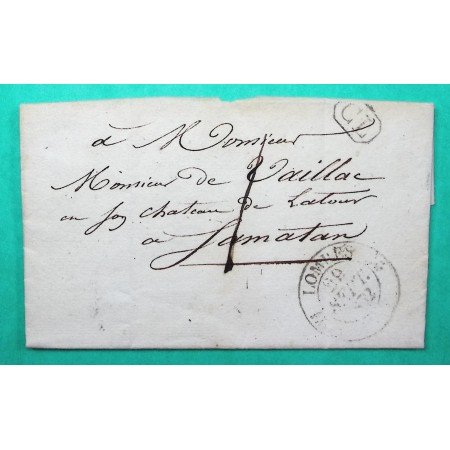 à Monsieur
Monsieur de Vaillac
en son chateau de Latour
a Lamatan
1
CL
LOMBES
SEPT.